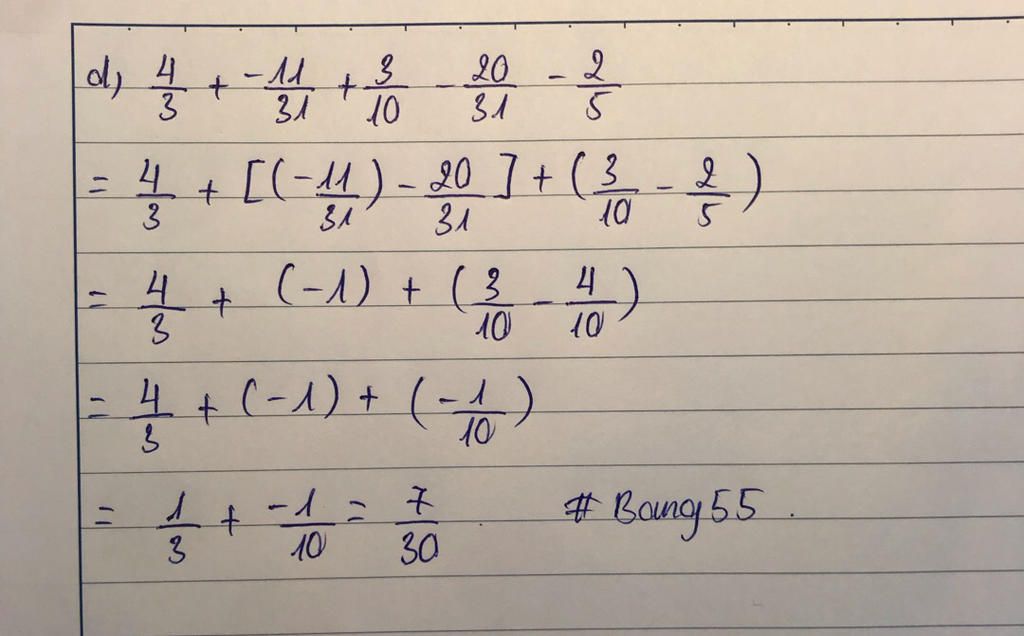 d) 4/3 + -11/31 + 3/10 - 20/31 - 2/5
= 4/3 + [(-11/31) - 20/31] + (3/10 - 2/5)
= 4/3 + (-1) + (3/10 - 4/10)
= 4/3 + (-1) + (-1/10)
= 1/3 + -1/10 = 7/30 . # Bang55 .